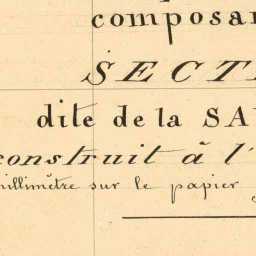 composa
SECTI
dite de la SA
construit à l'
millimètre sur le papier